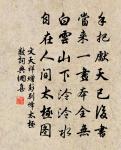 手把天已後書
當來一畫本全無
白雲山下泠泠水
自在人間太極圖
文天祥贈彭別峰太極
數詞典網集